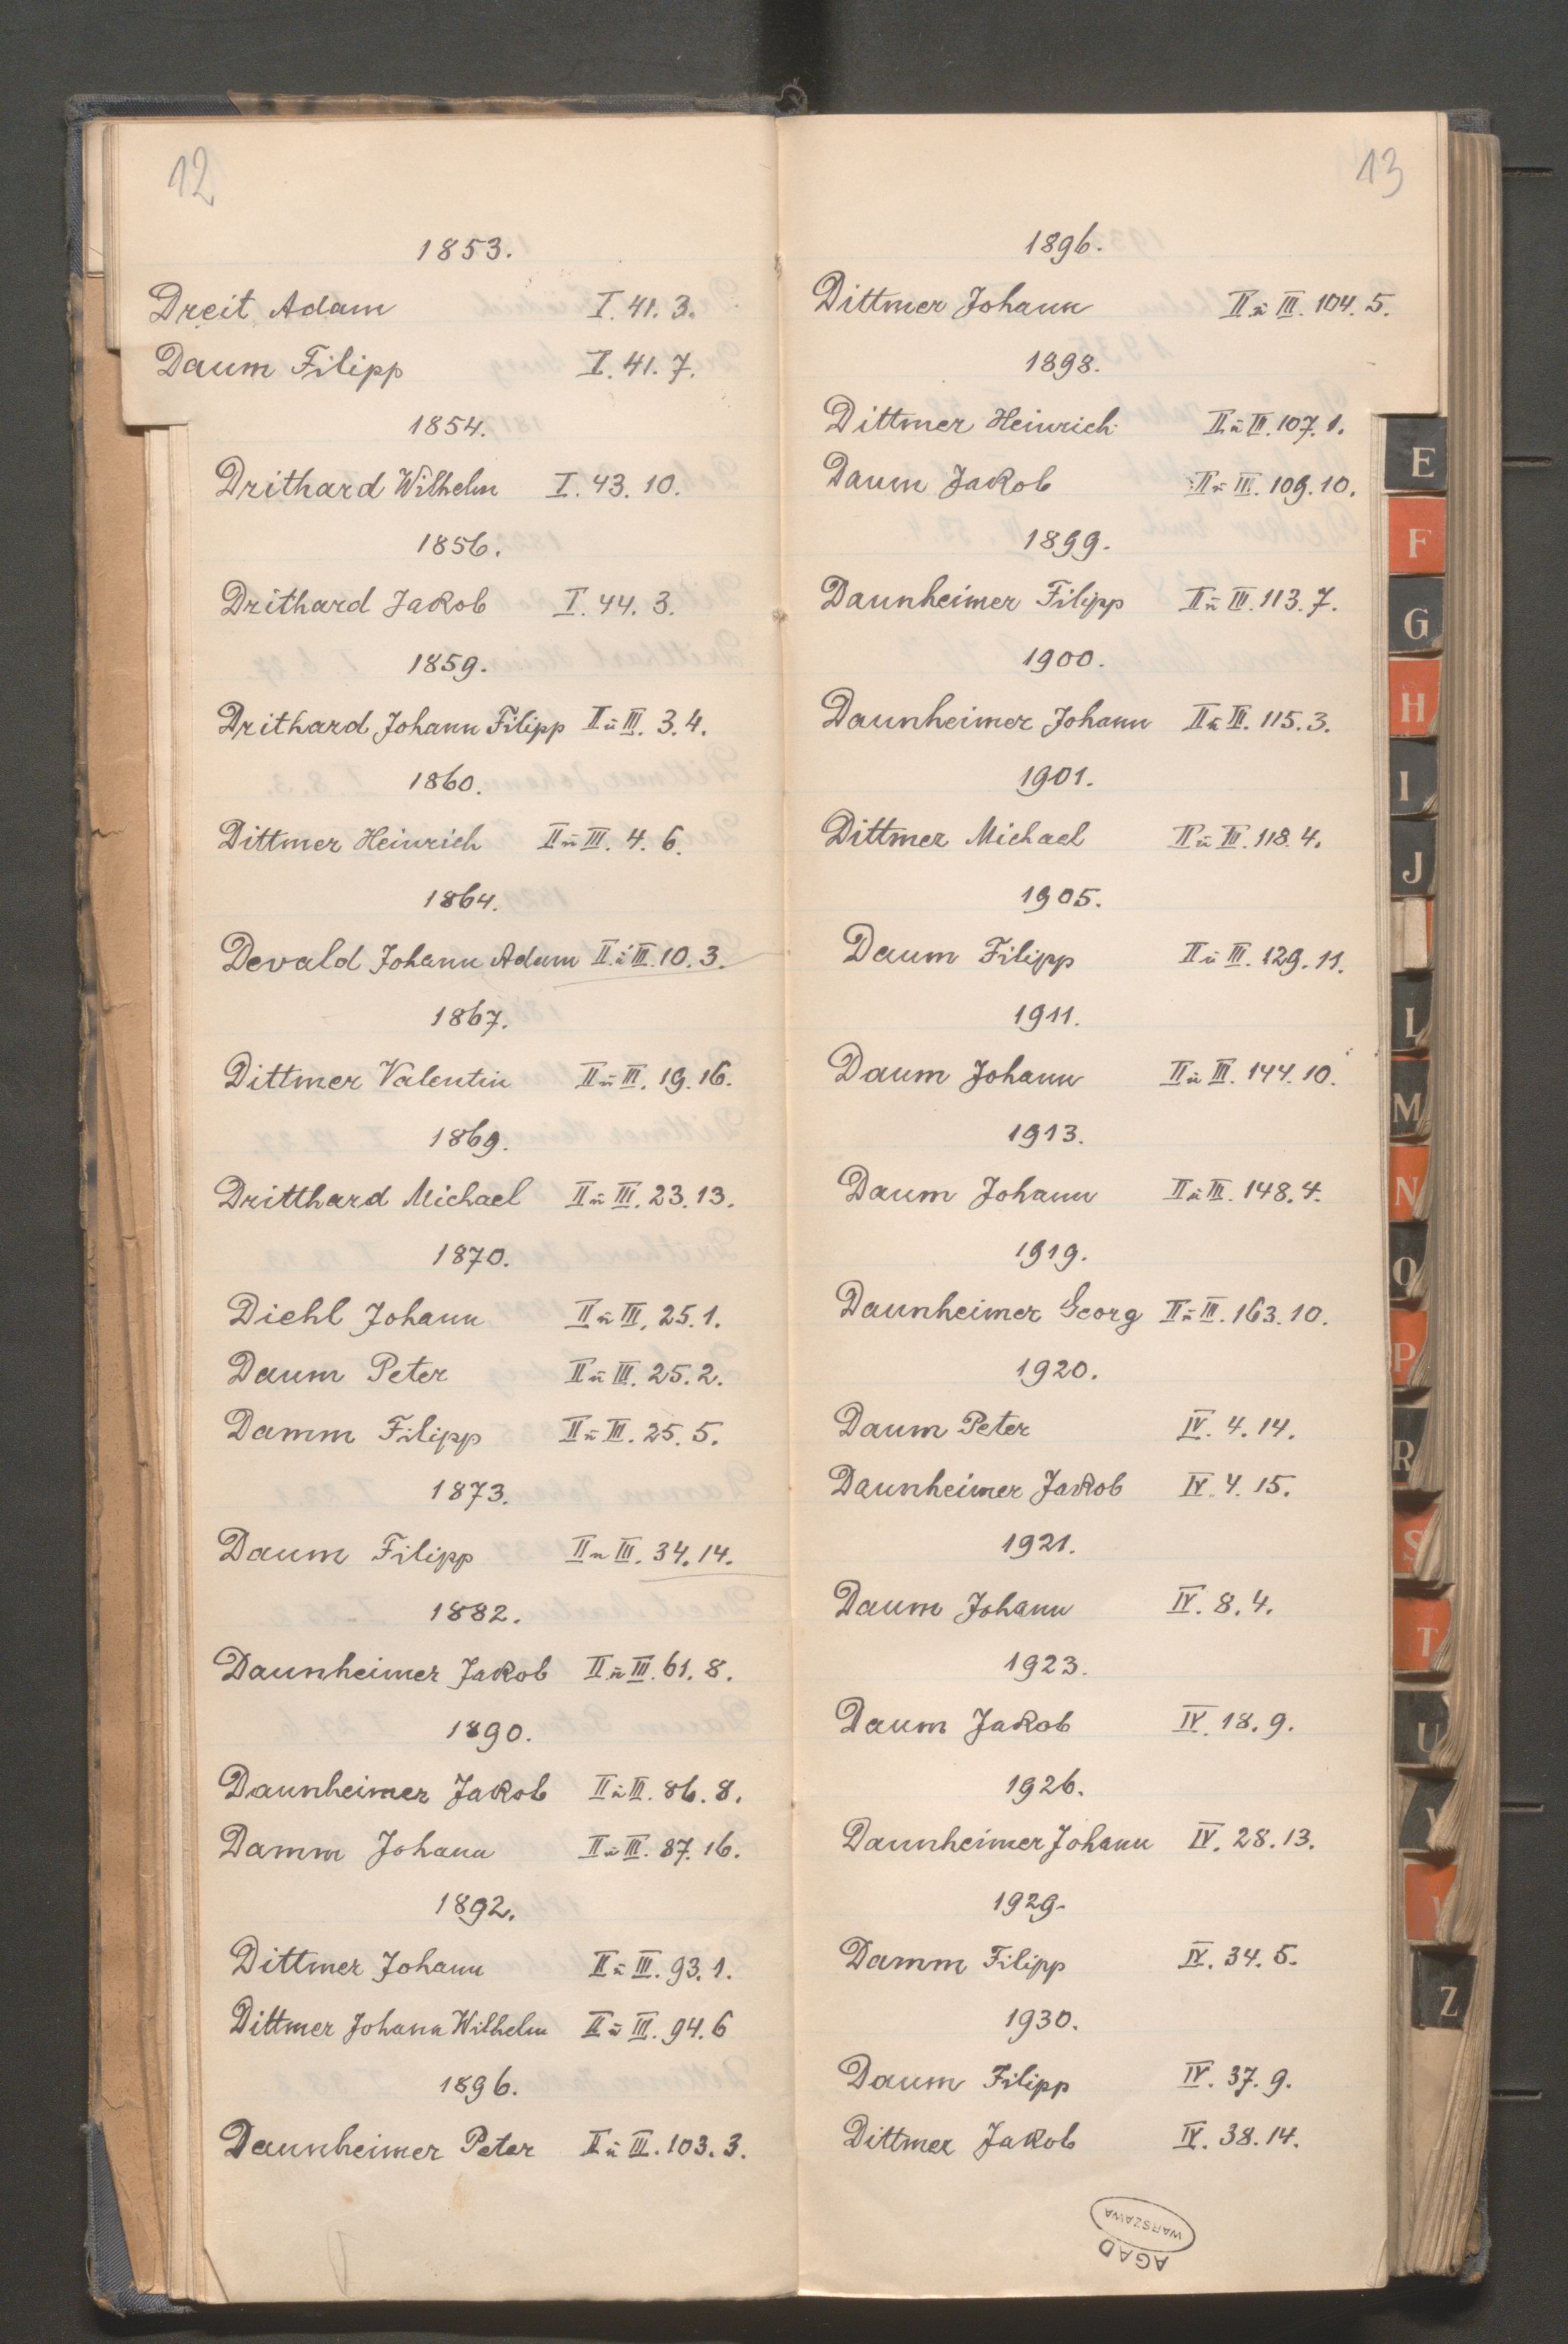 12
1853.
Dreit Adam I. 41. 3.
Daum Filipp I. 41. 7.
1854.
Drithard Wilhelm I. 43. 10.
1856.
Drithard Jakob I. 44. 3.
1859.
Drithard Johann Filipp II ü III. 3. 4.
1860.
Dittmer Heinrich II ü III. 4. 6.
1864.
Devald Johann Adam II ü III. 10. 3.
1867.
Dittmer Valentin II ü III. 19. 16.
1869.
Dritthard Michael II ü III. 23. 13.
1870.
Diehl Johann II ü III. 25. 1.
Daum Peter II ü III. 25. 2.
Damm Filipp II ü III. 25. 5.
1873.
Daum Filipp II ü III. 34. 14.
1882.
Daunheimer Jakob II ü III. 61. 8.
1890.
Daunheimer Jakob II ü III. 86. 8.
Damm Johann II ü III. 87. 16.
1892.
Dittmer Johann II ü III. 93. 1.
Dittmer Johann Wilhelm II ü III. 94. 6
1896.
Daunheimer Peter II ü III. 103. 3.
13
1896.
Dittmer Johann II ü III. 104. 5.
1898.
Dittmer Heinrich II ü III. 107. 1.
Daum Jakob II ü III. 109. 10.
1899.
Daunheimer Filipp II ü III. 113. 7.
1900.
Daunheimer Johann II ü III. 115. 3.
1901.
Dittmer Michael II ü III. 118. 4.
1905.
Daum Filipp II ü III. 129. 11.
1911.
Daum Johann II ü III. 144. 10.
1913.
Daum Johann II ü III. 148. 4.
1919.
Daunheimer Georg II ü III. 163. 10.
1920.
Daum Peter IV. 4. 14.
Daunheimer Jakob IV. 4. 15.
1921.
Daum Johann IV. 8. 4.
1923.
Daum Jakob IV. 18. 9.
1926.
Daunheimer Johann IV. 28. 13.
1929.
Damm Filipp IV. 34. 5.
1930.
Daum Filipp IV. 37. 9.
Dittmer Jakob IV. 38. 14.
AGAD
WARSZAWA
D
E
F
G
H
I
J
L
M
N
O
P
R
S
T
U
Z